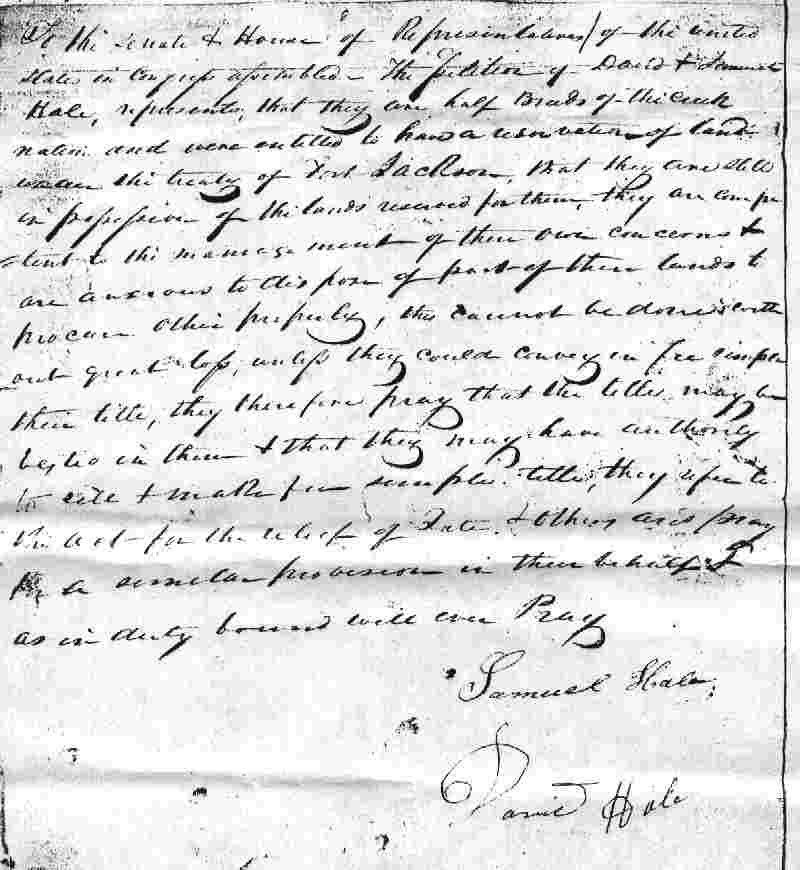 To the Senate & House of Representatives of the united
States in Congress assembled - The petition of David & Samuel
Hale, represents, that they are half Breeds of the Creek
nation and were entitled to have a reservation of land
under the treaty of Fort Jackson, that they are still
in possession of the lands reserved for them, they are compe
=tent to the management of their own concerns &
are anxious to dispose of part of their lands to
procure other property, this cannot be done with
out great loss, unless they could convey in fee simple
their title, they therefore pray that the title may be
vested in them & that they may have authority
to sell & make fee simple title, they refer to
the act for the relief of & others and pray
for a similar provision in their behalf &
as in duty bound will ever Pray
Samuel Hale,
David Hale